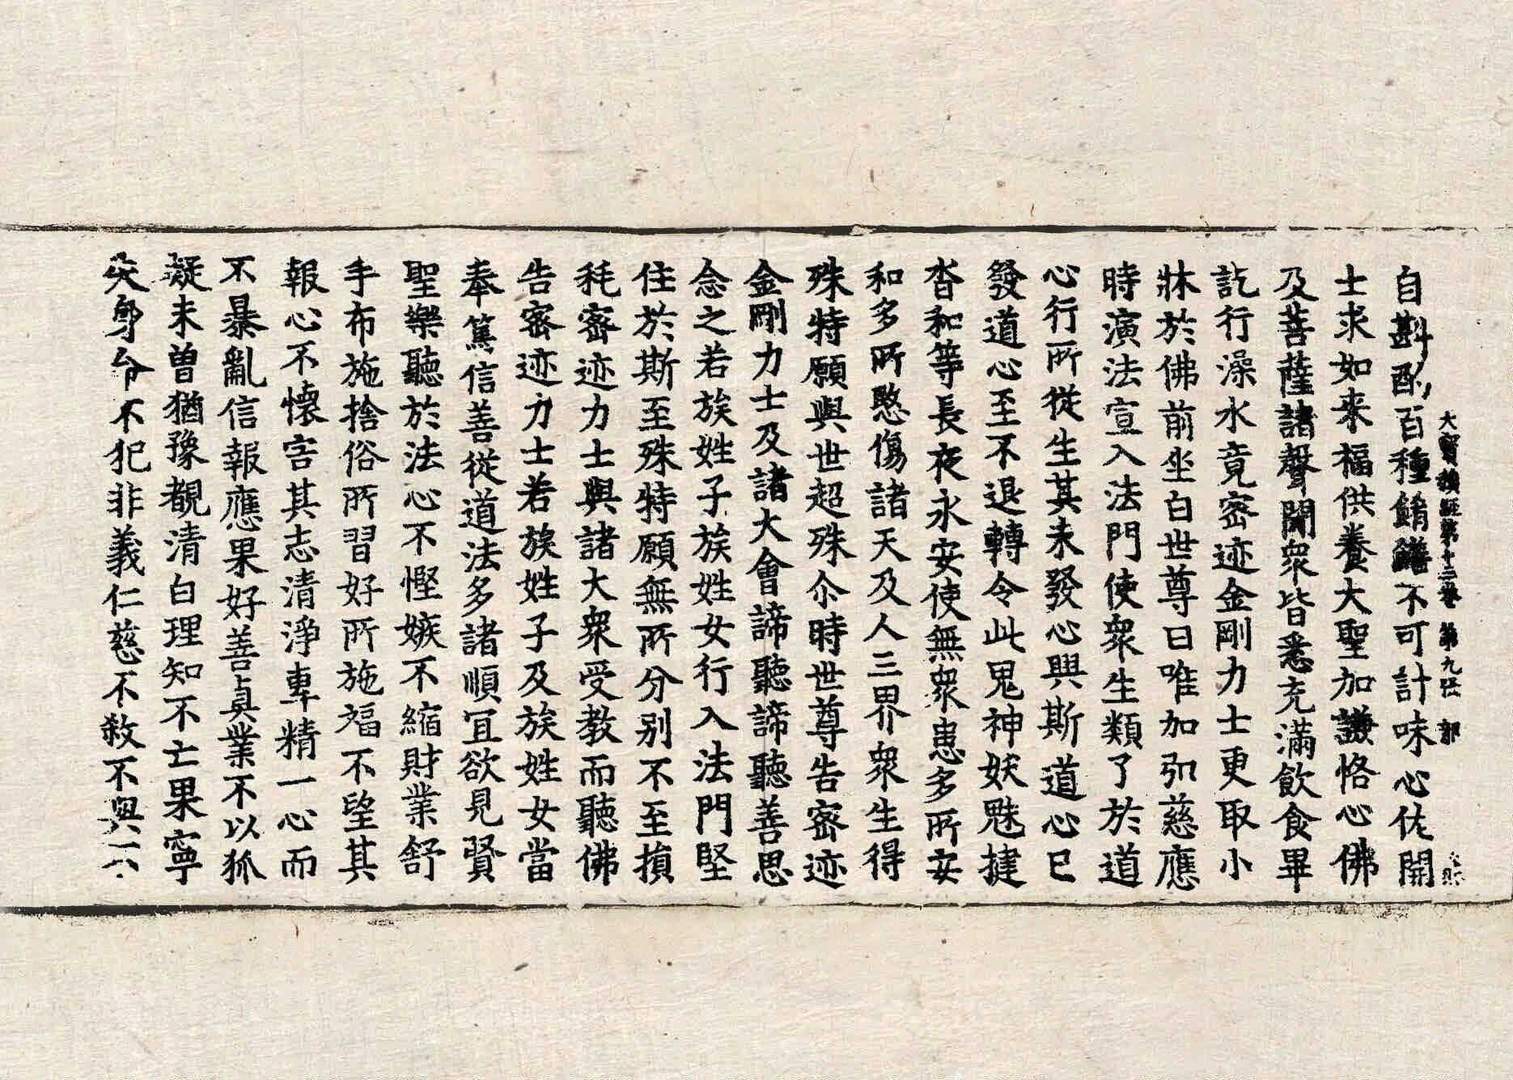 大寶積經第十三卷 第九張 鄁
自斟酌百種餚饍不可計味心佐開
士求如来福供養大聖加謙恪心佛
及菩薩諸聲聞衆皆悉充滿飲食畢
訖行澡水竟密迹金剛力士更取小
牀於佛前坐白世尊曰唯加弘慈應
時演法宣入法門使衆生類了於道
心行所從生其未發心興斯道心已
發道心至不退轉令此鬼神妖魅揵
沓和等長夜永安使無衆患多所安
和多所愍傷諸天及人三界衆生得
殊特願與世超殊尒時世尊告密迹
金剛力士及諸大會諦聽諦聽善思
念之若族姓子族姓女行入法門堅
住於斯至殊特願無所分別不至損
耗密迹力士與諸大衆受教而聽佛
告密迹力士若族姓子及族姓女當
奉篤信善從道法多諸順宜欲見賢
聖樂聽於法心不慳嫉不縮財業舒
手布施捨俗所習好所施福不望其
報心不懷害其志清淨專精一心而
不暴亂信報應果好善真業不以狐
疑未曽猶豫覩清白理知不亡果寧
失身命不犯非義仁慈不殺不與不